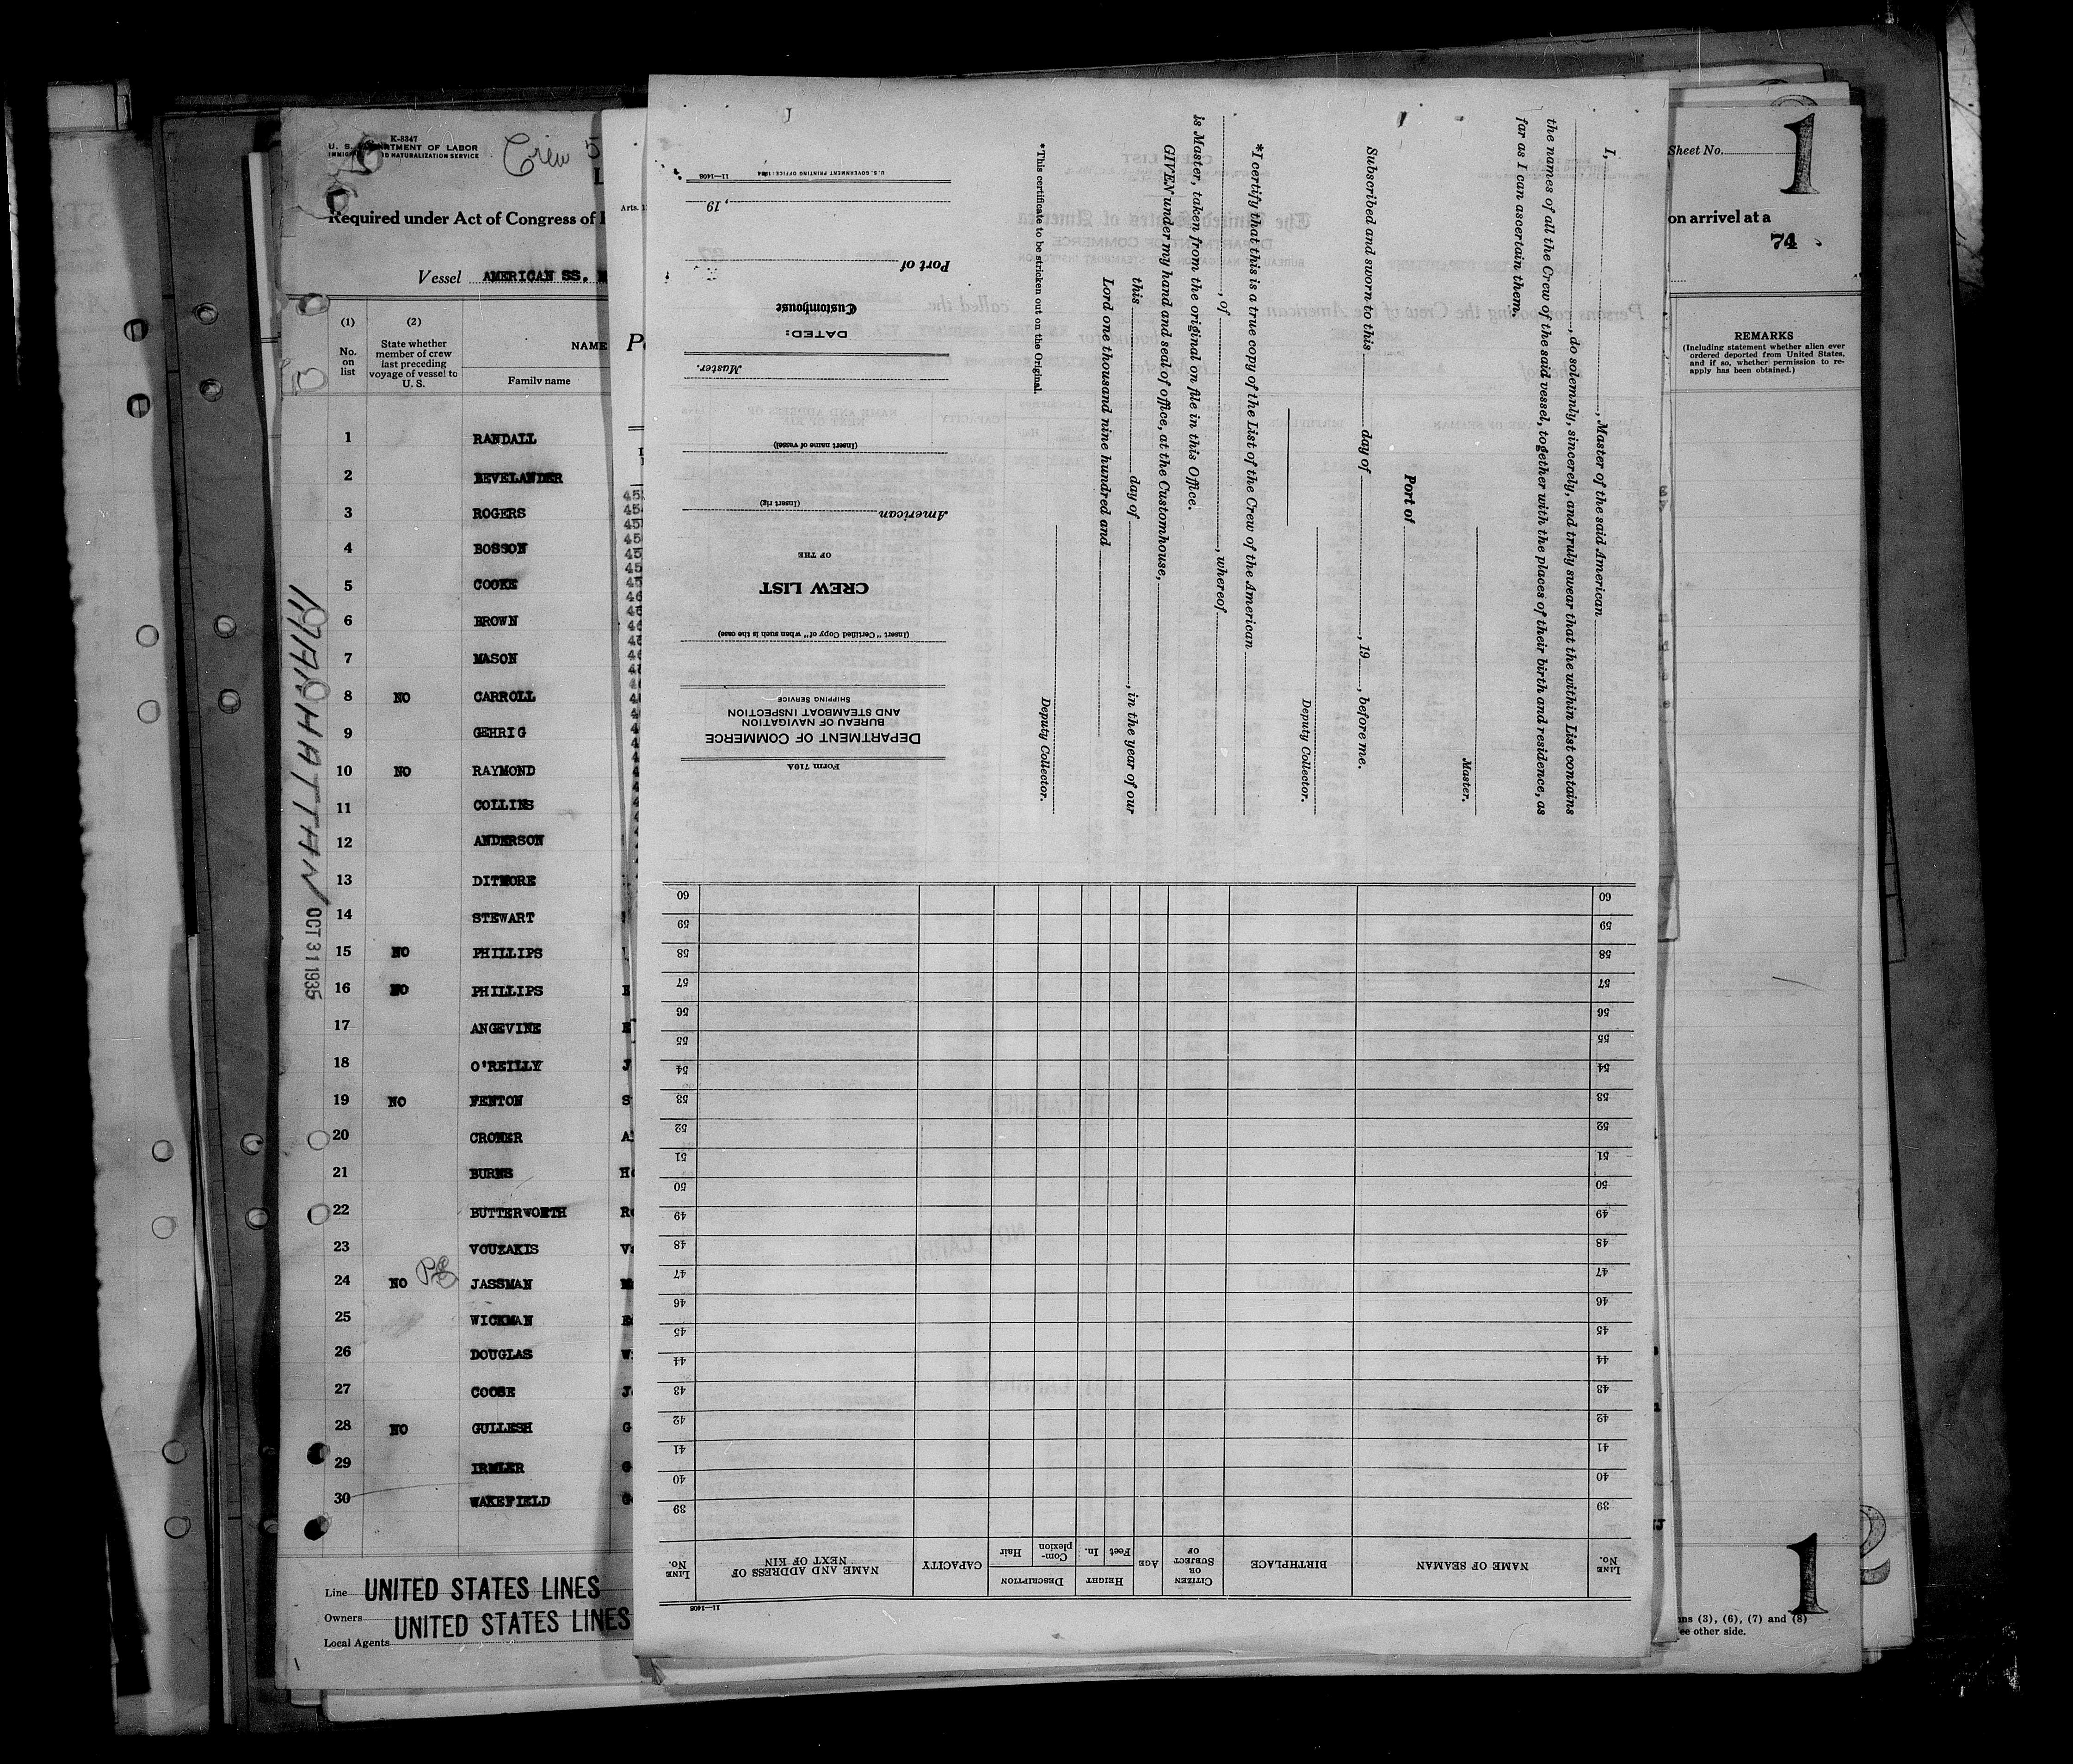 K-8347
U. S. DEPARTMENT OF LABOR
IMMIGRATION AND NATURALIZATION SERVICE
Crew 5
Required under Act of Congress of
Vessel AMERICAN SS.
(1) (2)
No. on list
State whether member of crew last preceding voyage of vessel to U. S.
NAME
Family name
1 RANDALL
2 BEVELANDER
3 ROGERS
4 BOSSON
5 COOKE
6 BROWN
7 MASON
8 NO CARROLL
9 GEHRIG
10 NO RAYMOND
11 COLLINS
12 ANDERSON
13 DITMORE
14 STEWART
15 NO PHILLIPS
16 NO PHILLIPS
17 ANGEVINE
18 O'REILLY
19 NO FENTON
20 CROMER
21 BURNS
22 BUTTERWORTH
23 VOUZAKIS
24 NO JASSMAN
25 WICKMAN
26 DOUGLAS
27 COOSE
28 NO GULLESH
29 IRMLER
30 WAKEFIELD
Line UNITED STATES LINES
Owners UNITED STATES LINES
Local Agents
MANHATTAN
OCT 31 1935
Arts.
I, , Master of the said American
, do solemnly, sincerely, and truly swear that the within List contains
the names of all the Crew of the said vessel, together with the places of their birth and residence, as
far as I can ascertain them.
Master.
Port of
Subscribed and sworn to this day of , 19 , before me.
Deputy Collector.
*I certify that this is a true copy of the List of the Crew of the American
, of , whereof
is Master, taken from the original on file in this Office.
GIVEN under my hand and seal of office, at the Customhouse,
this day of , in the year of our
Lord one thousand nine hundred and
Deputy Collector.
*This certificate to be stricken out on the Original.
Form 710A
DEPARTMENT OF COMMERCE
BUREAU OF NAVIGATION
AND STEAMBOAT INSPECTION
SHIPPING SERVICE
(Insert "Certified Copy of" when such is the case)
CREW LIST
OF THE
American
(Insert rig)
(Insert name of vessel)
Master.
DATED:
Customhouse
Port of
, 19
U. S. GOVERNMENT PRINTING OFFICE: 11—1408
11—1408
LINE No.
NAME OF SEAMAN
BIRTHPLACE
CITIZEN OR SUBJECT OF
AGE
HEIGHT
Feet In.
DESCRIPTION
Complexion Hair
CAPACITY
NAME AND ADDRESS OF NEXT OF KIN
LINE No.
39 39
40 40
41 41
42 42
43 43
44 44
45 45
46 46
47 47
48 48
49 49
50 50
51 51
52 52
53 53
54 54
55 55
56 56
57 57
58 58
59 59
60 60
Sheet No. 1
on arrival at a
74
REMARKS
(Including statement whether alien ever ordered deported from United States, and if so, whether permission to reapply has been obtained.)
1
(3), (6), (7) and (8)
other side.
2